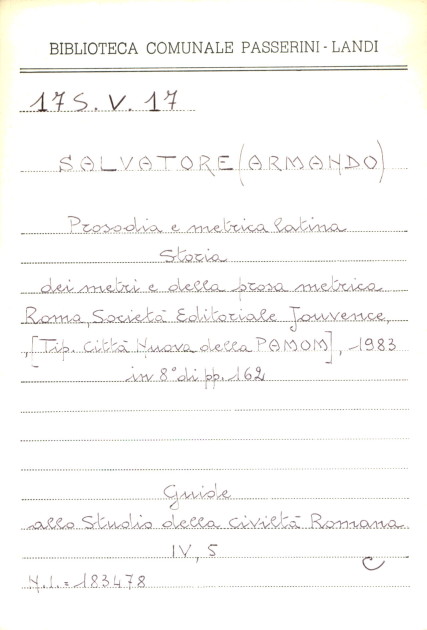 BIBLIOTECA COMUNALE PASSERINI - LANDI
17 S. V. 17
SALVATORE (ARMANDO)
Prosodia e metrica latina
Storia
dei metri e della prosa metrica
Roma, Società Editoriale Jouvence,
[Tip. Città Nuova della PAMOM], 1983
in 8° di pp. 162
Guide
allo Studio della civiltà Romana
IV, 5
C
N.I. = 183478